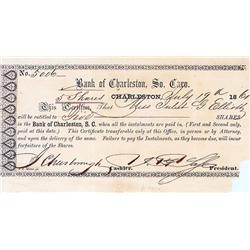 No. 5006
Bank of Charleston, So. Caro.
5 Shares CHARLESTON, July 19th 186
This Certifies That Miss Juliet G Elliott
will be entitled to Five SHARES
in the Bank of Charleston, S. C. when all the instalments are paid in, (First and Second only,
paid at this date.) This Certificate transferable only at this Office, in person or by Attorney,
and upon the delivery of the same. Failure to pay the Instalments, as they become due, will incur
forfeiture of the Shares.
Cashier. President.